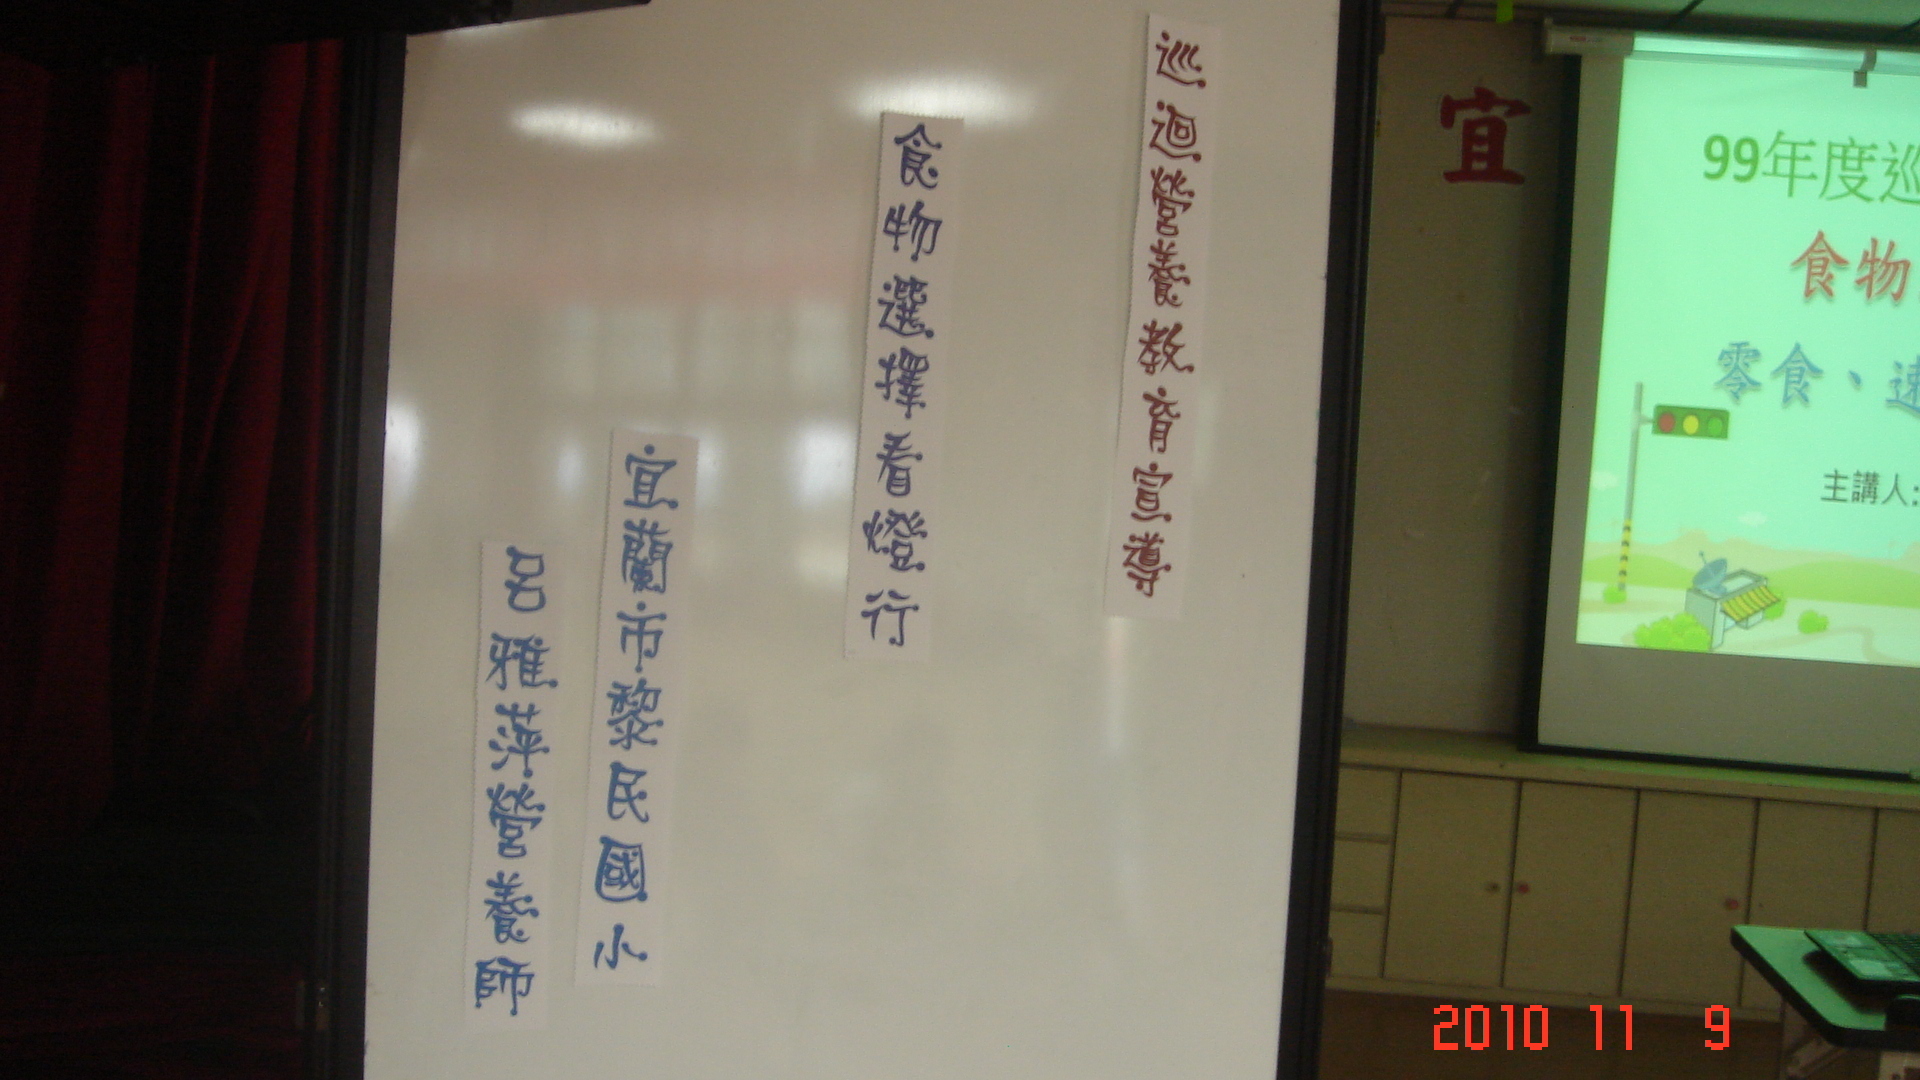 巡迴營養教育宣導
食物選擇看燈行
宜蘭市黎民國小
呂雅萍營養師
宜
99年度巡
食物
零食、速
主講人:
2010 11 9